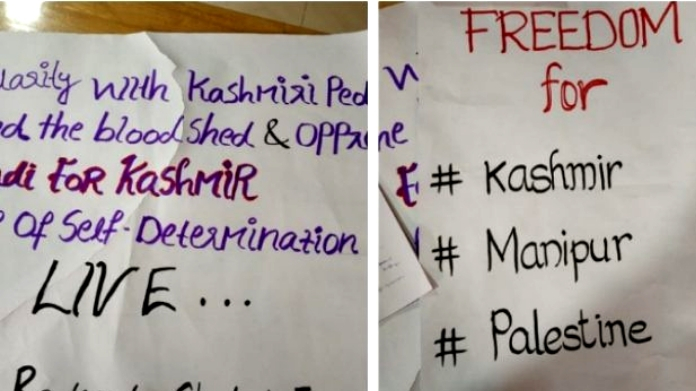 with Kashmiri
the bloodshed &
FOR KASHMIR
Of Self-Determination
LIVE...
FREEDOM
for
# Kashmir
# Manipur
# Palestine